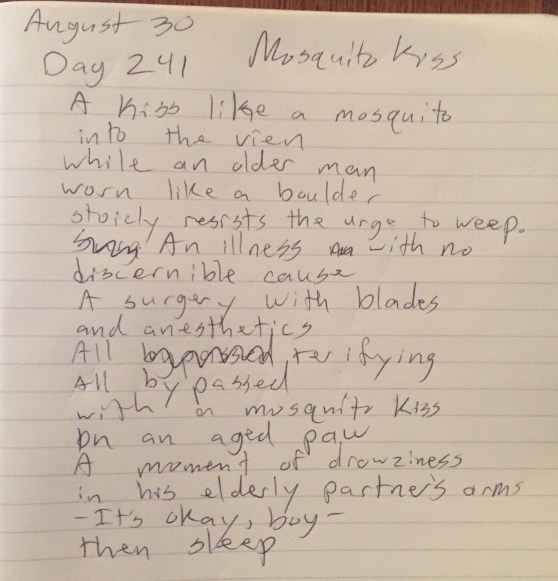 August 30
Day 241 Mosquito Kiss
A kiss like a mosquito
into the vien
while an older man
worn like a boulder
stoicly resists the urge to weep.
An illness with no
discernible cause
A surgery with blades
and anesthetics
All terifying
All bypassed
with a mosquito kiss
on an aged paw
A moment of drowziness
in his elderly partner's arms
-It's okay, boy-
then sleep